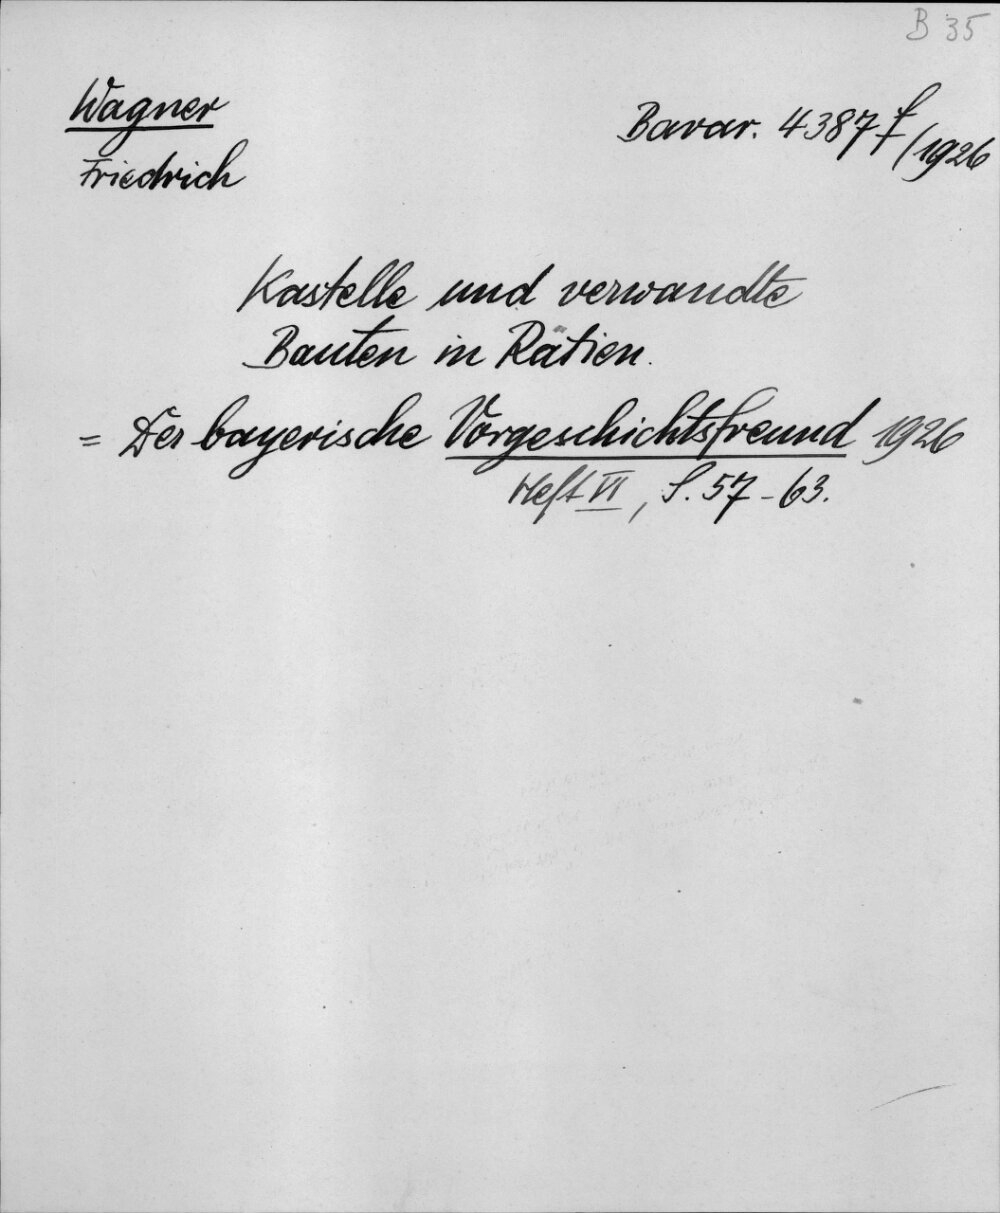 B 35
Wagner
Friedrich
Bavar. 4387 f/1926
Kastelle und verwandte
Bauten in Rätien.
= Der bayerische Vorgeschichtsfreund 1926
Heft VI, S. 57-63.